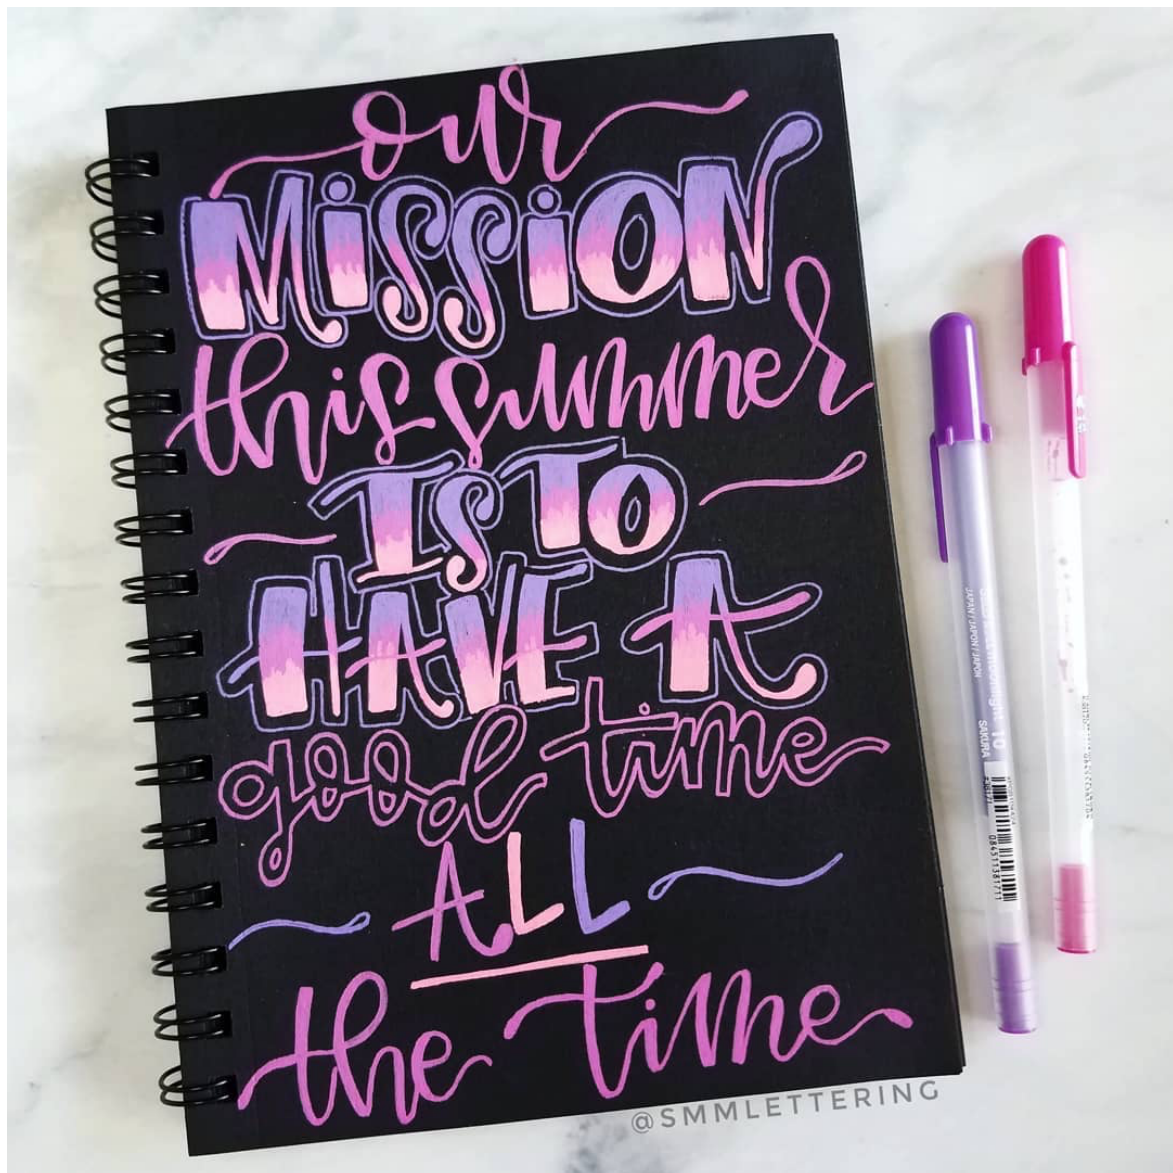 our
MiSSiON
this summer
IS TO
HAVE A
good time
ALL
the time
@SMMLETTERING
JAPAN / JAPON / JAPON
SAKURA
084511381711